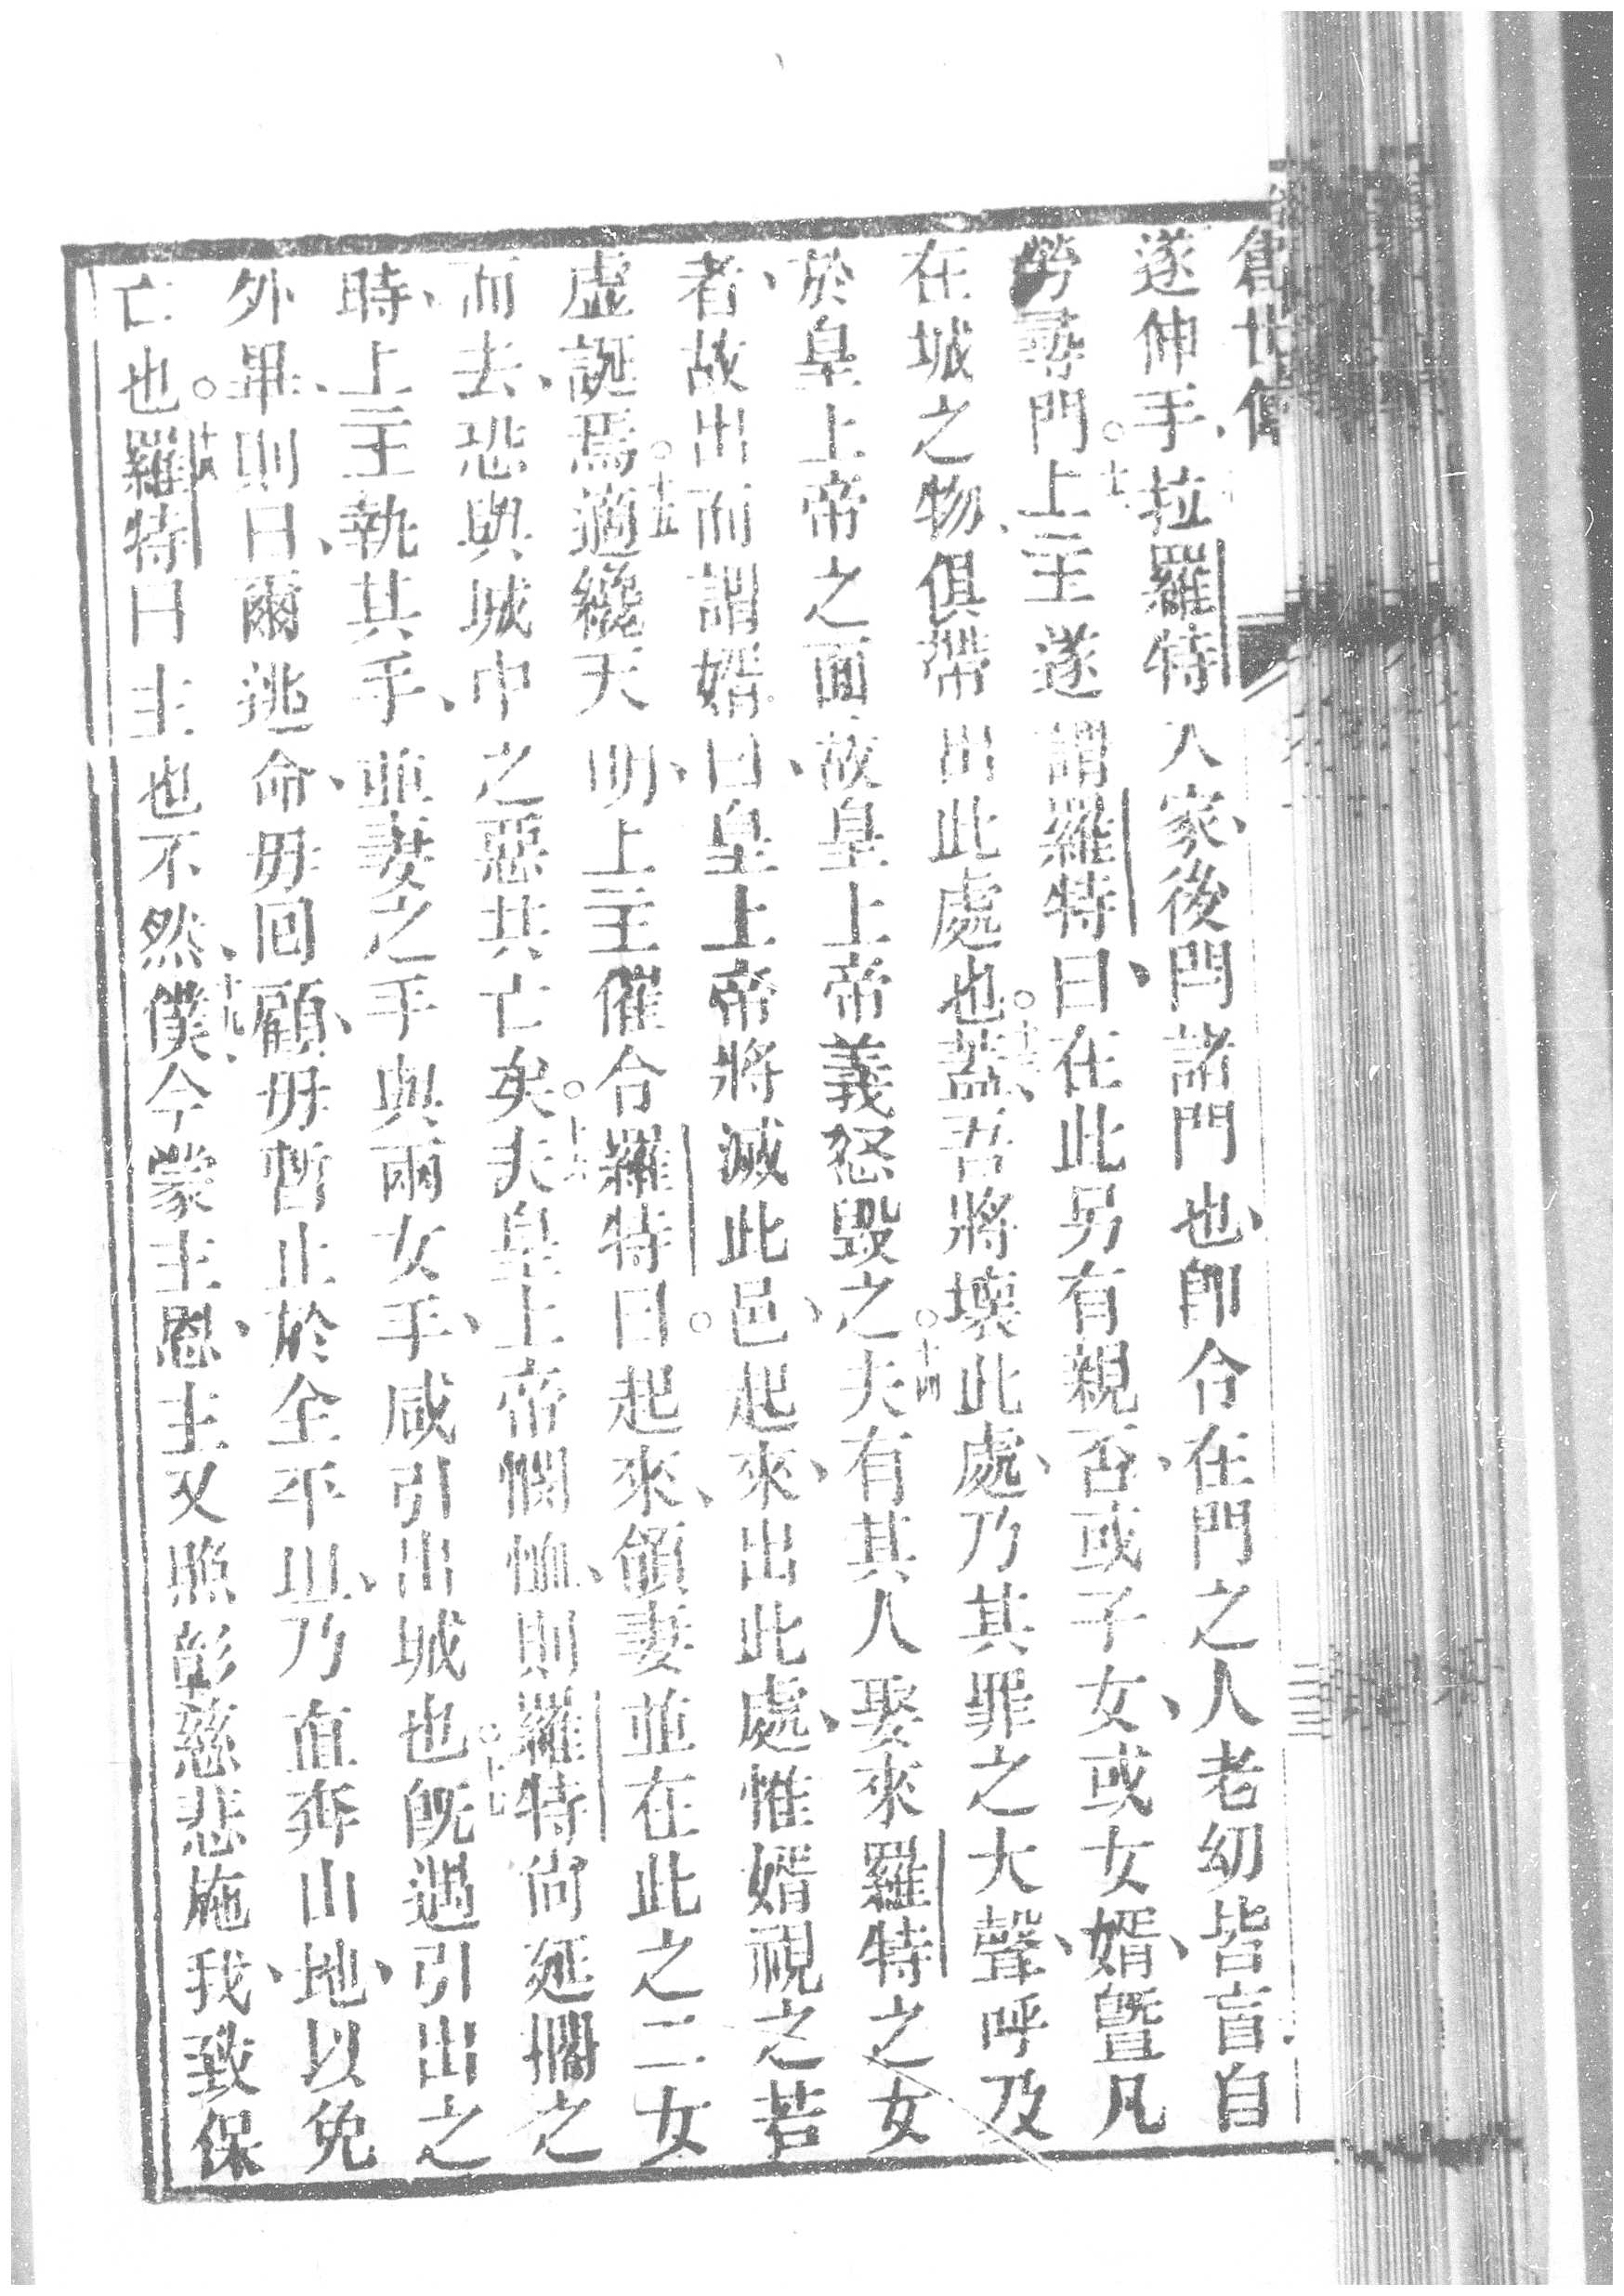 創世傳
二三
遂伸手、拉羅特入家、後閂諸門也、卽令在門之人老幼皆盲自
勞尋門。十二上主遂謂羅特、曰在此另有親否、或子女、或女婿、曁凡
在城之物、俱帶出此處也。十三蓋吾將壞此處、乃其罪之大聲、呼及
於皇上帝之面、故皇上帝義怒毀之。十四夫有其人娶來羅特之女
者、故出而謂婿曰、皇上帝將滅此邑、起來、出此處、惟婿視之若
虛誕焉。十五適纔天明、上主催令羅特曰。起來、領妻並在此之二女
而去、恐與城中之惡共亡矣。十六夫皇上帝憫恤、則羅特尙延擱之
時、上主執其手、並妻之手與兩女手、咸引出城也。十七旣遇引出之
外畢、則曰、爾逃命、毋回顧、毋暫止於全平山、乃直奔山地、以免
亡也。十八羅特曰主也不然、十九僕今蒙主恩、主又照彰慈悲施我、致保